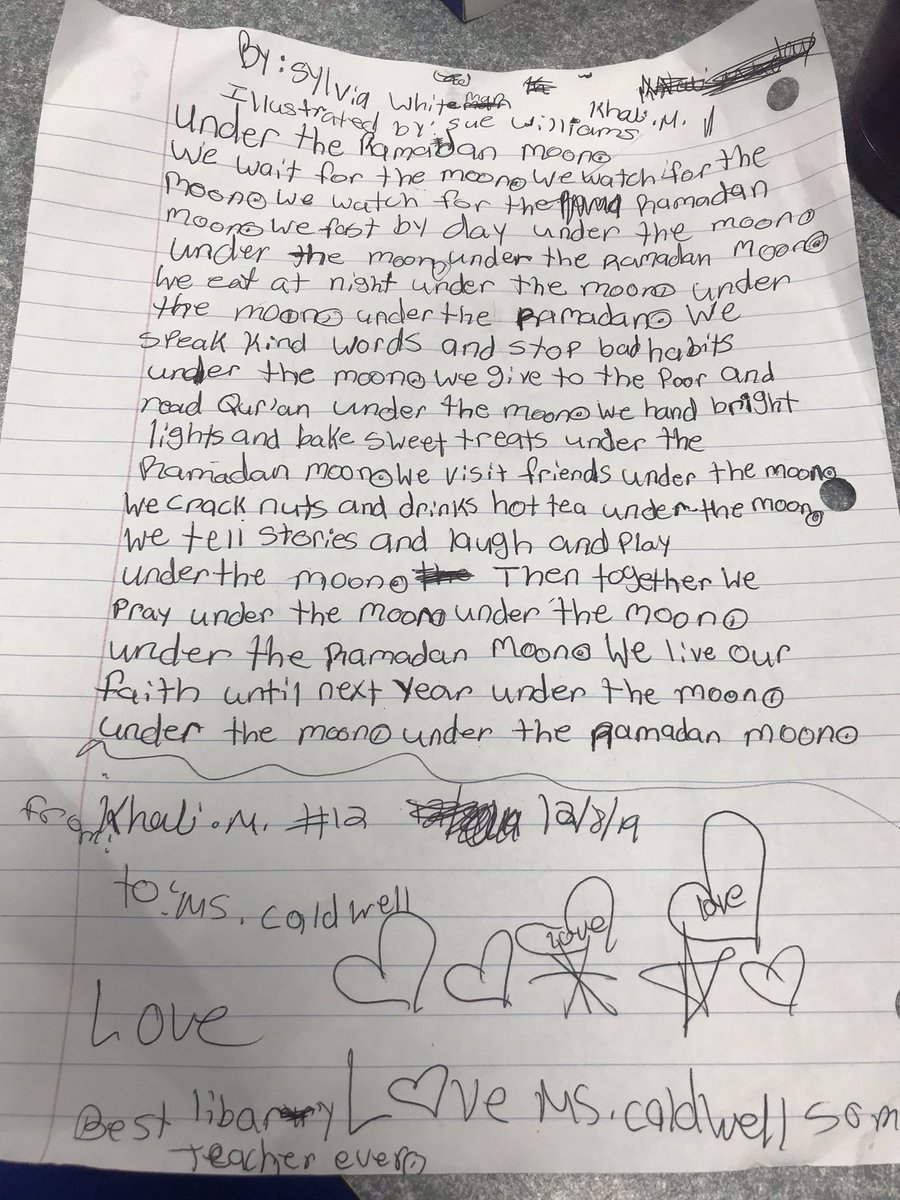 By: Sylvia White
Illustrated by: Sue Williams Khali.M.
Under the Ramadan moon.
We wait for the moon. We watch for the
moon. We watch for the Ramadan
moon. We fast by day under the moon.
under the moon, under the Ramadan Moon.
We eat at night under the moon. under
the moon. under the Ramadan. We
speak kind words and stop bad habits
under the moon. We give to the Poor and
read Qur'an under the moon. We hand bright
lights and bake sweet treats under the
Ramadan moon. We visit friends under the moon.
We crack nuts and drinks hot tea under the moon.
We tell stories and laugh and Play
under the moon. Then together We
Pray under the moon. under the moon.
under the Ramadan Moon. We live our
faith until next Year under the moon.
under the moon. under the Ramadan moon.
from: Khali.M. #12 12/8/19
to: Ms. Caldwell
Love Love
Love
Best libary L♡ve Ms. Caldwell som
Teacher ever.